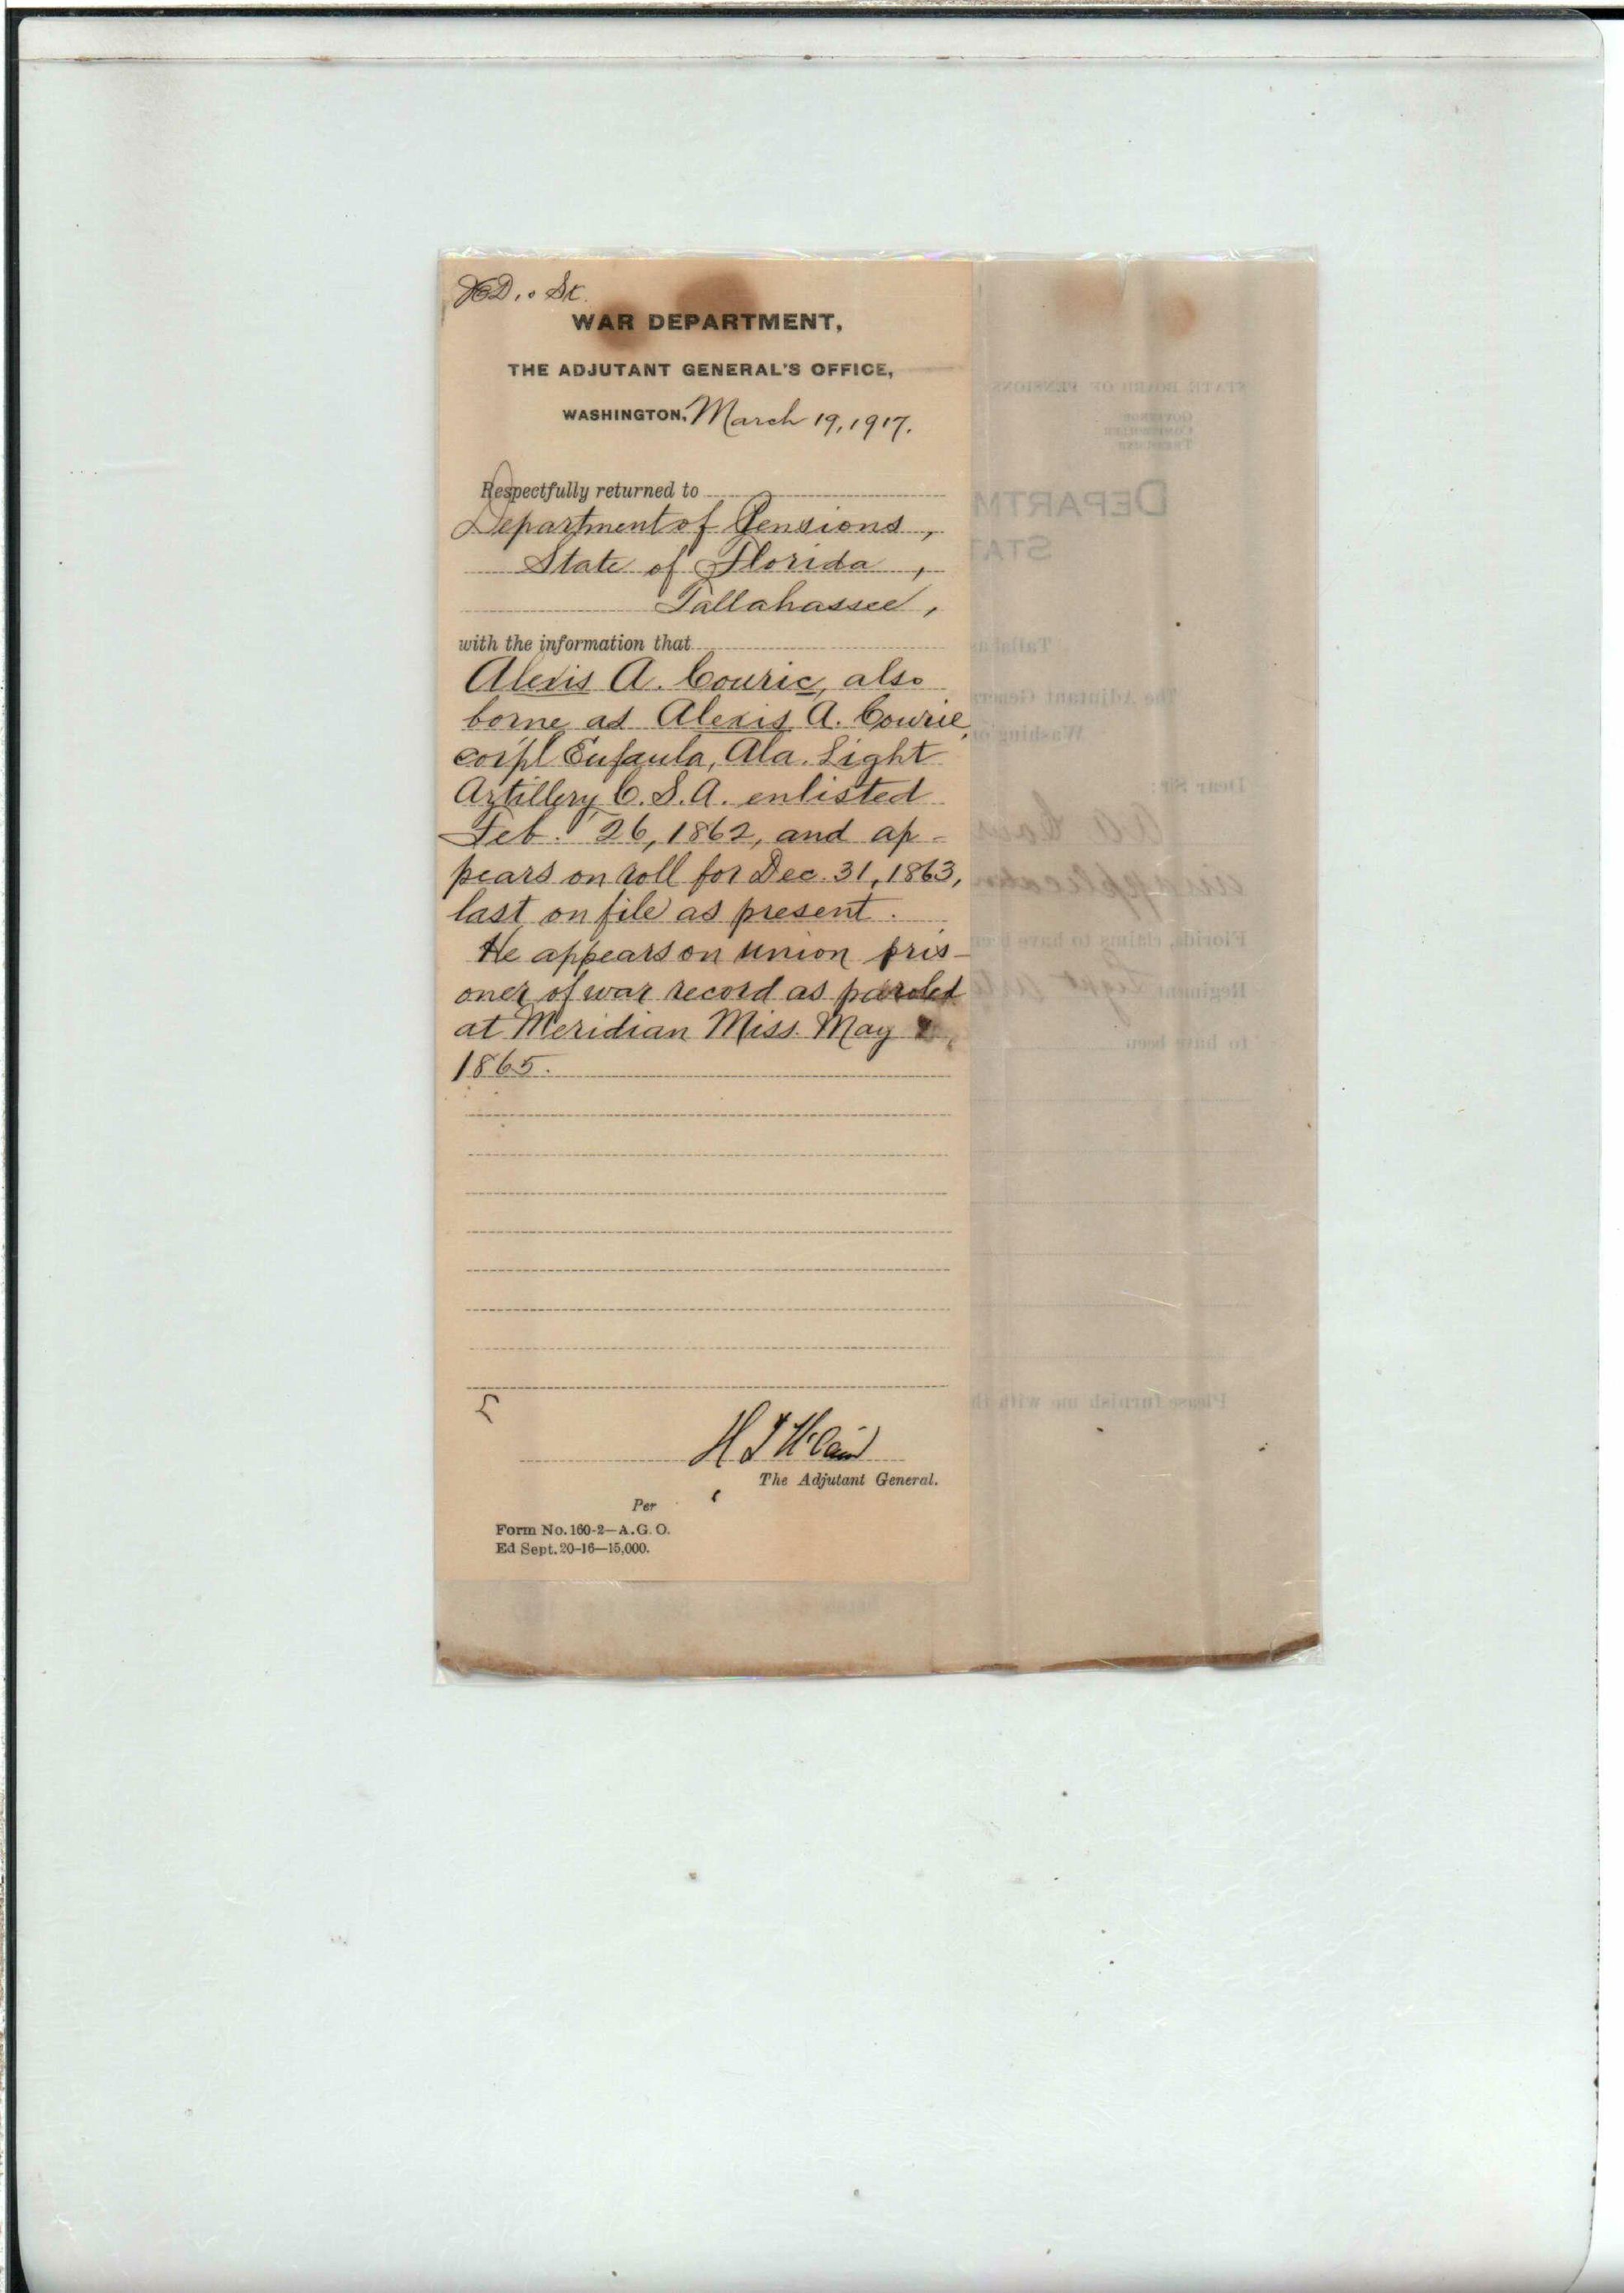 WAR DEPARTMENT,
THE ADJUTANT GENERAL'S OFFICE,
WASHINGTON, March 19, 1917.
Respectfully returned to
Department of Pensions,
State of Florida,
Tallahassee,
with the information that
Alexis A. Couric, also
borne as Alexis A. Courie,
corpl Eufaula, Ala. Light
Artillery C.S.A. enlisted
Feb. 26, 1862, and ap-
pears on roll for Dec. 31, 1863,
last on file as present.
He appears on union pris-
oner of war record as paroled
at Meridian Miss. May
1865.
The Adjutant General.
Per
Form No. 160-2—A.G.O.
Ed Sept. 20-16—15,000.
STATE BOARD OF PENSIONS
GOVERNOR
COMPTROLLER
TREASURER
DEPARTM
STAT
The Adjutant Gener
Washing
Dear Sir:
Florida, claims to have been
Regiment
to have been
Please furnish me with th